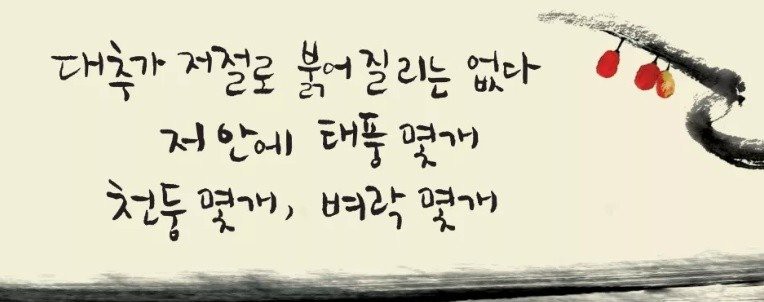 대추가 저절로 붉어질리는 없다
저 안에 태풍 몇개
천둥 몇개, 벼락 몇개